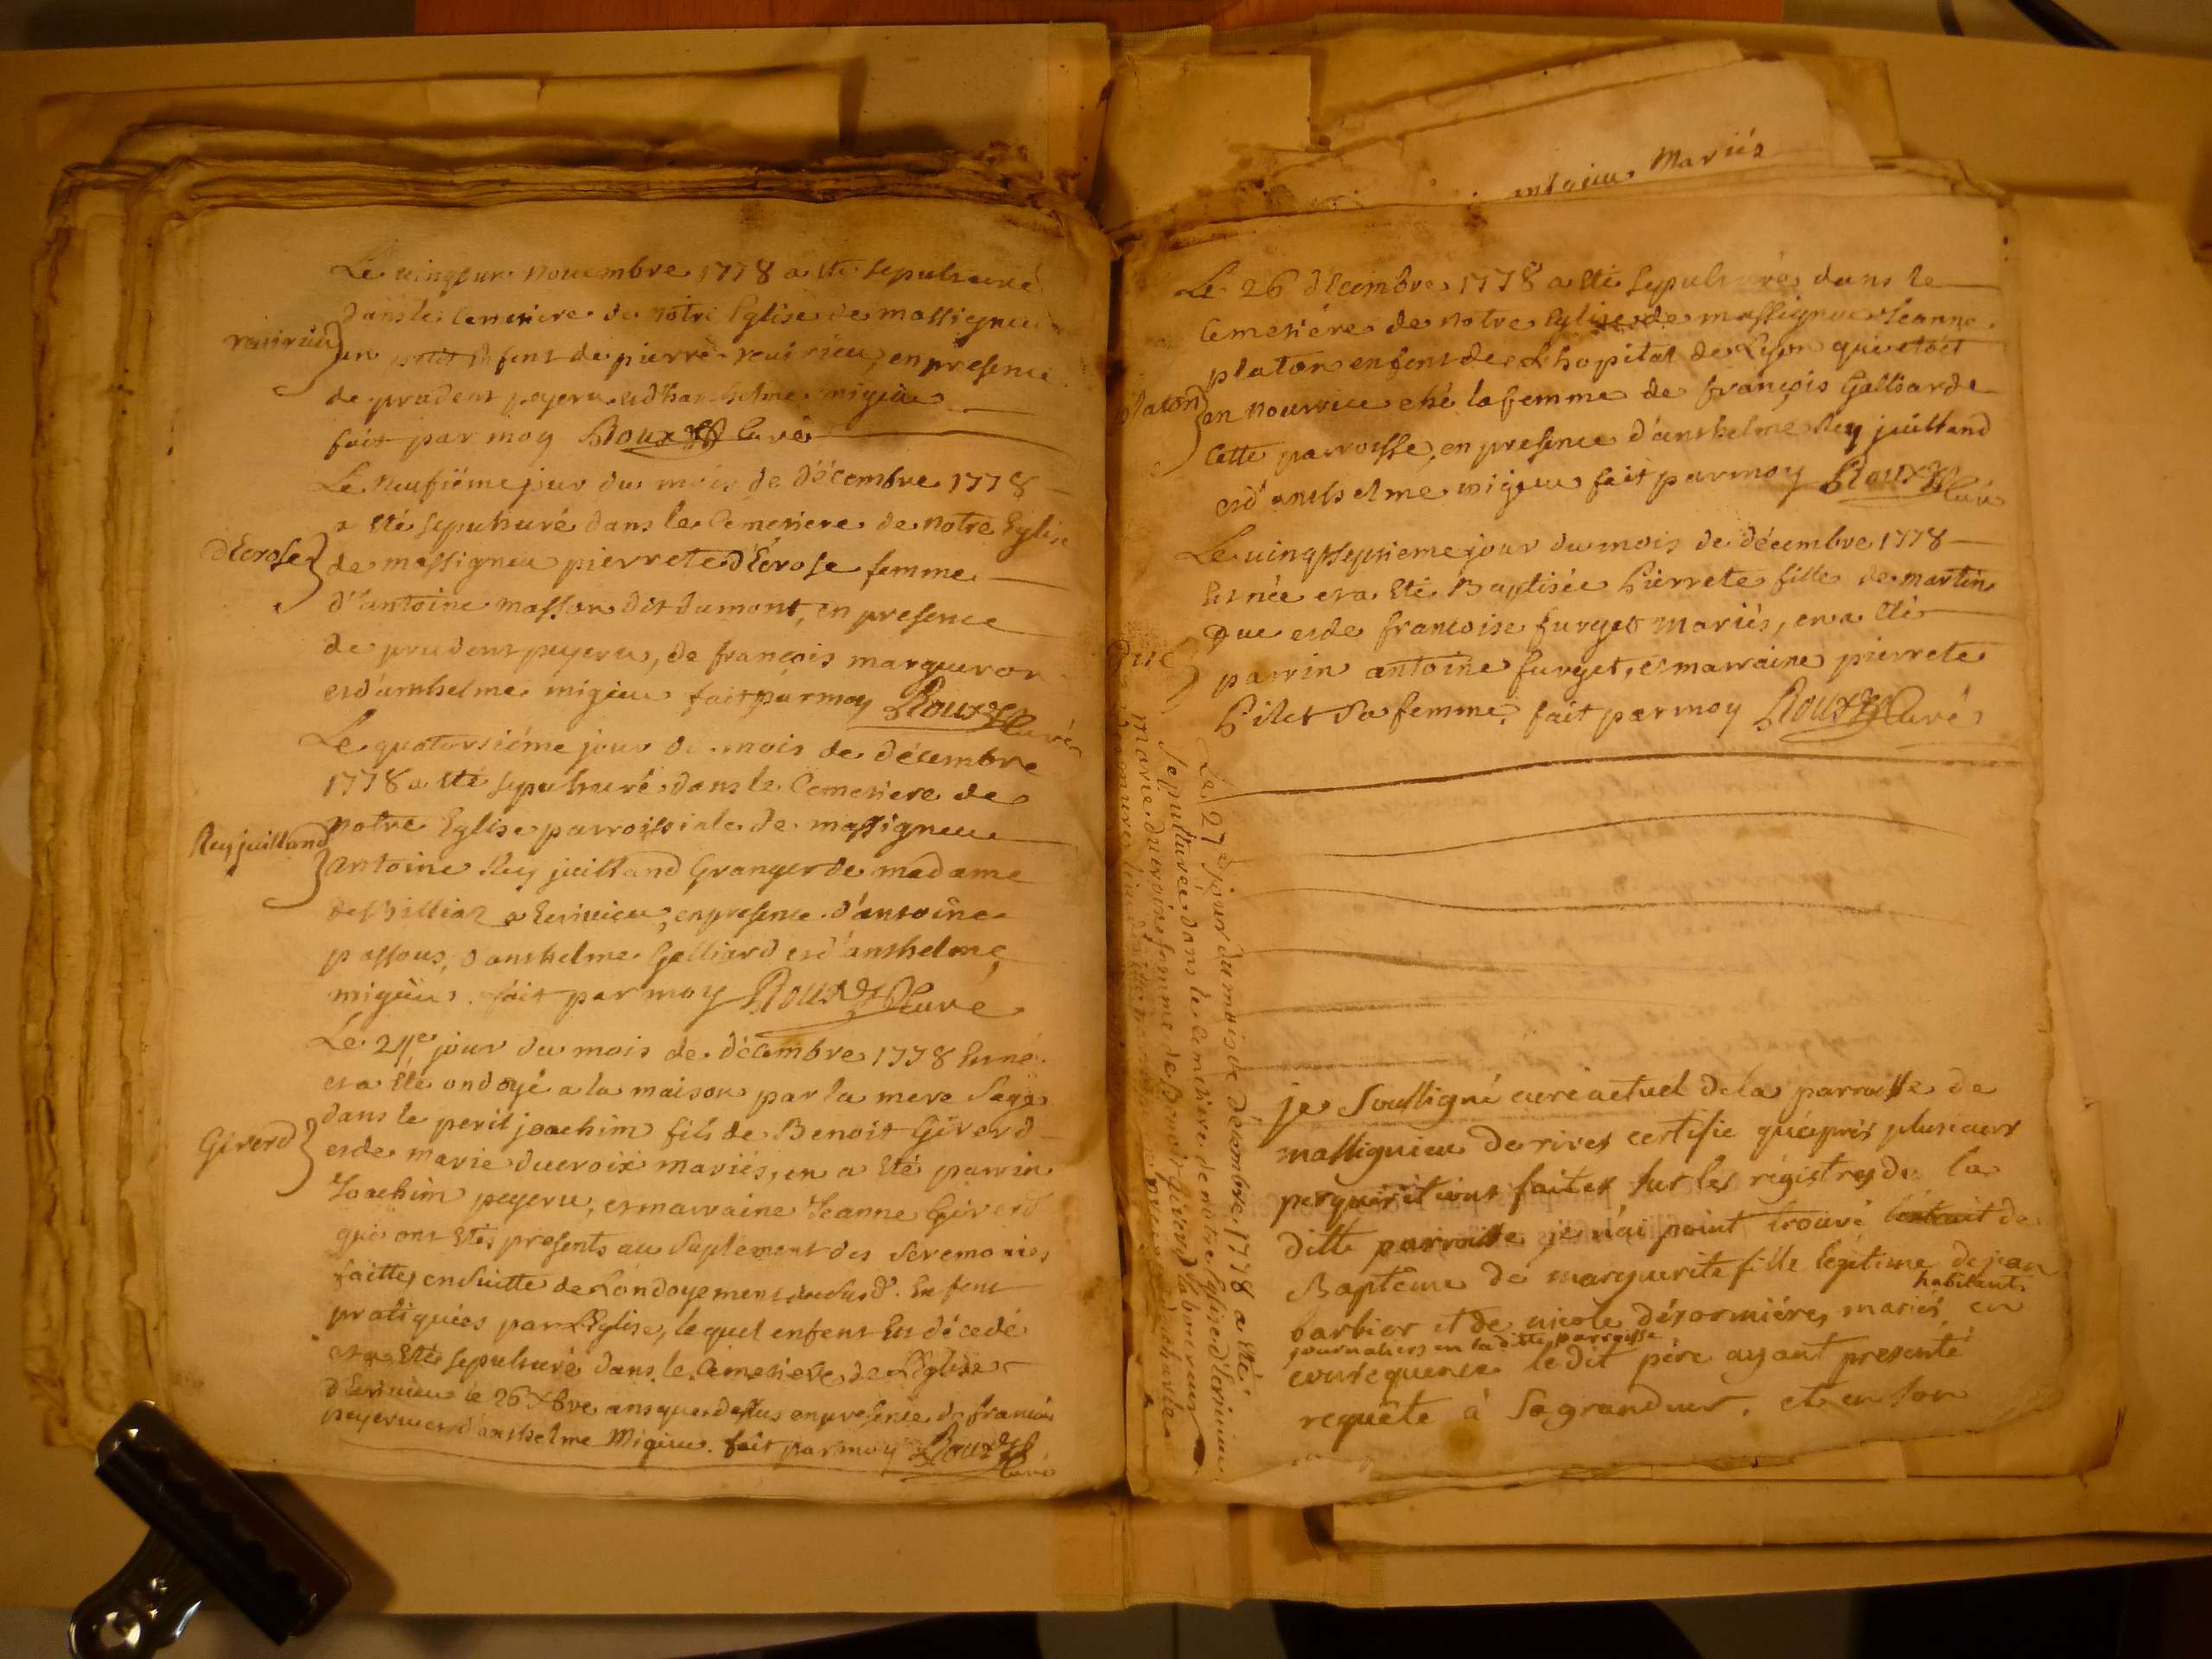 Le vingt un novembre 1778 a ete sepulturé
dans le Cemetiere de notre Eglise de massigneu
ravirieu
un petit Enfent de pierre ravirieu, en presence
de prudent peyeru et d'hanthelme migieu
fait par moy Roux Curé
Le neufiéme jour du mois de décembre 1778
a eté sepulturé dans le Cemetiere de notre Eglise
d'Ecrose
de massigneu pierrete d'Ecrose femme
d'antoine masson dit dumont, en presence
de prudent peyeru, de françois marqueron
et d'anthelme migieu fait par moy Roux Curé
Le quatorsiéme jour du mois de décembre
1778 a eté sepulturé dans le Cemetiere de
notre Eglise parroissiale de massigneu
Rey juilland
antoine Rey juilland Granger de madame
de Billiaz a Evrivieu, en presence d'antoine
passous, d'anthelme Galliard et d'anthelme
migieu fait par moy Roux Curé
Le 24e jour du mois de décembre 1778 Est né
et a eté ondoyé a la maison par la mere Sage
dans le peril joachim fils de Benoit Giverd
Giverd
et de marie ducroix mariés, en a eté parrin
Joachim peyeru, et marraine Jeanne Giverd
qui ont etés presents au Suplement des Seremonies
faittes en Suitte de Londoyement du Susd. Enfent
pratiquées par L'Eglise, lequel enfent Est décedé
et a eté sepulturé dans le Cemetiere de L'Eglise
d'Evrivieu le 26 Xbre an que dessus en presence de francois
peyeru et d'anthelme Migieu. fait par moy Roux
Curé
antoine Mariés
Le 26 décembre 1778 a eté sepulturée dans le
Cemetiére de notre Eglise de massigneu Jeanne
platon enfent de L'hopital de Lyon qui etoit
platon
en nourrice ché la femme de françois Galliard de
Cette parroisse, en presence d'anthelme Rey juilland
et d'anthelme migieu fait par moy Roux Curé
Le vingt septieme jour du mois de décembre 1778
Est née et a eté Baptisée Pierrete fille de martin
que et de francoise furget mariés, en a eté
que
parrin antoine furget, et marraine pierrete
Pilet Sa femme. fait par moy Roux Curé
Le 27e jour du mois de décembre 1778 a eté
Sepulturée dans le Cemetiere de notre Eglise d'Evrivieu
marie ducroix femme de Benoit Giverd laboureur
je Soussigné curé actuel de la parroisse de
massignieu de rives certifie qu'après plusieurs
perquisitions faites sur les régistres de la
ditte parroisse je n'ai point trouvé l'extrait de
Baptême de marguerite fille légitime de jean
barbier et de nicole désormiéres mariés, habitants en
journaliers en la ditte parroisse,
consequence le dit père ayant presenté
requête à Sa grandeur, et en son